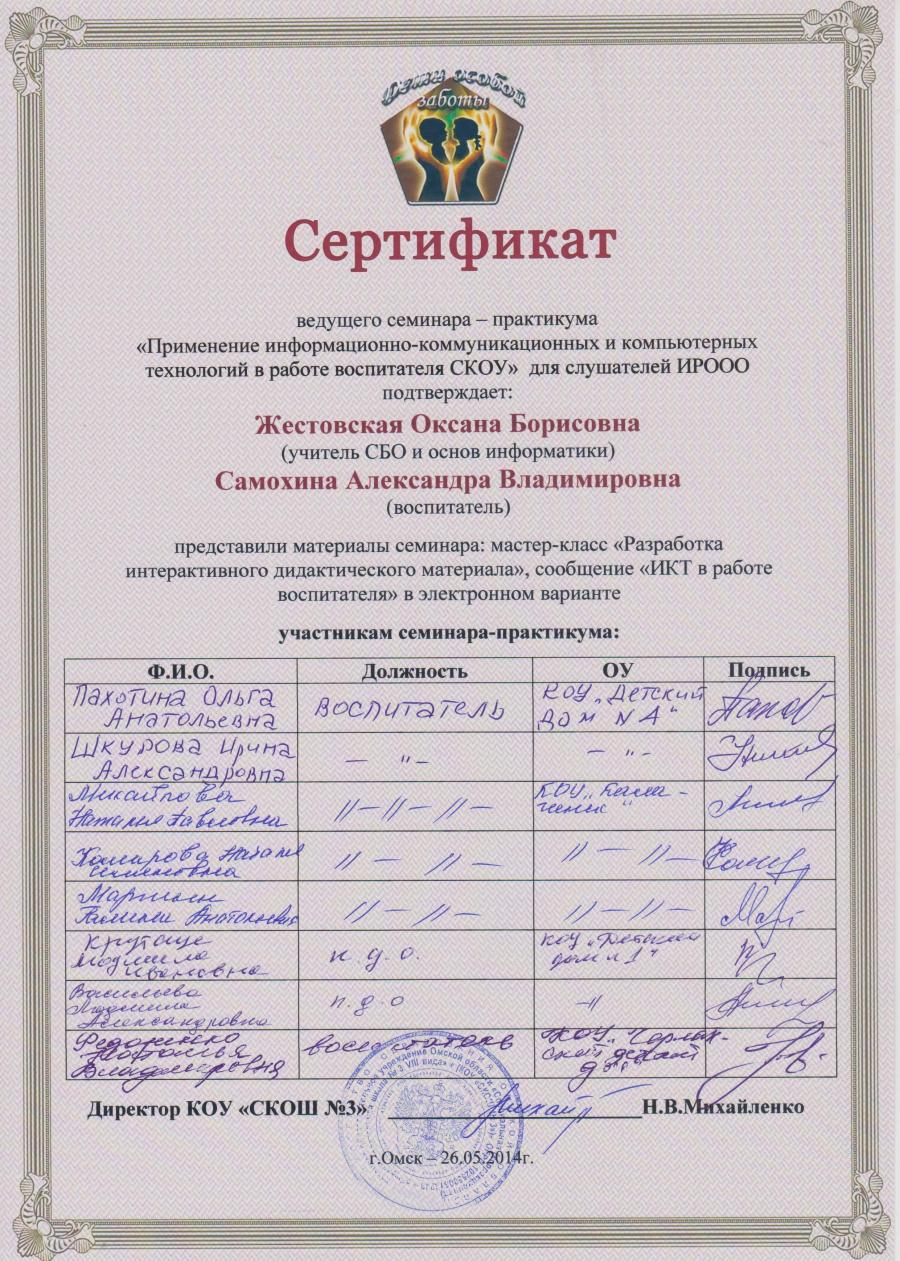 Дети особой
заботы
Сертификат
ведущего семинара – практикума
«Применение информационно-коммуникационных и компьютерных
технологий в работе воспитателя СКОУ» для слушателей ИРООО
подтверждает:
Жестовская Оксана Борисовна
(учитель СБО и основ информатики)
Самохина Александра Владимировна
(воспитатель)
представили материалы семинара: мастер-класс «Разработка
интерактивного дидактического материала», сообщение «ИКТ в работе
воспитателя» в электронном варианте
участникам семинара-практикума:
Ф.И.О. Должность ОУ Подпись
Пахотина Ольга
Анатольевна
воспитатель
КОУ „Детский
дом N4"
Шкурова Ирина
Александровна
— " -
— " -
Михайлова
Наталья Павловна
// — // — // —
КОУ
Наталья
// — // —
// — // —
Анатольевна
// — // —
// — // —
Людмила
Ивановна
п.д.о.
КОУ „Детский
дом N 1"
Васильева
Людмила
Александровна
п.д.о
—//
Федоренко
Наталья
Владимировна
КОУ
Директор КОУ «СКОШ №3» Н.В.Михайленко
г.Омск – 26.05.2014г.